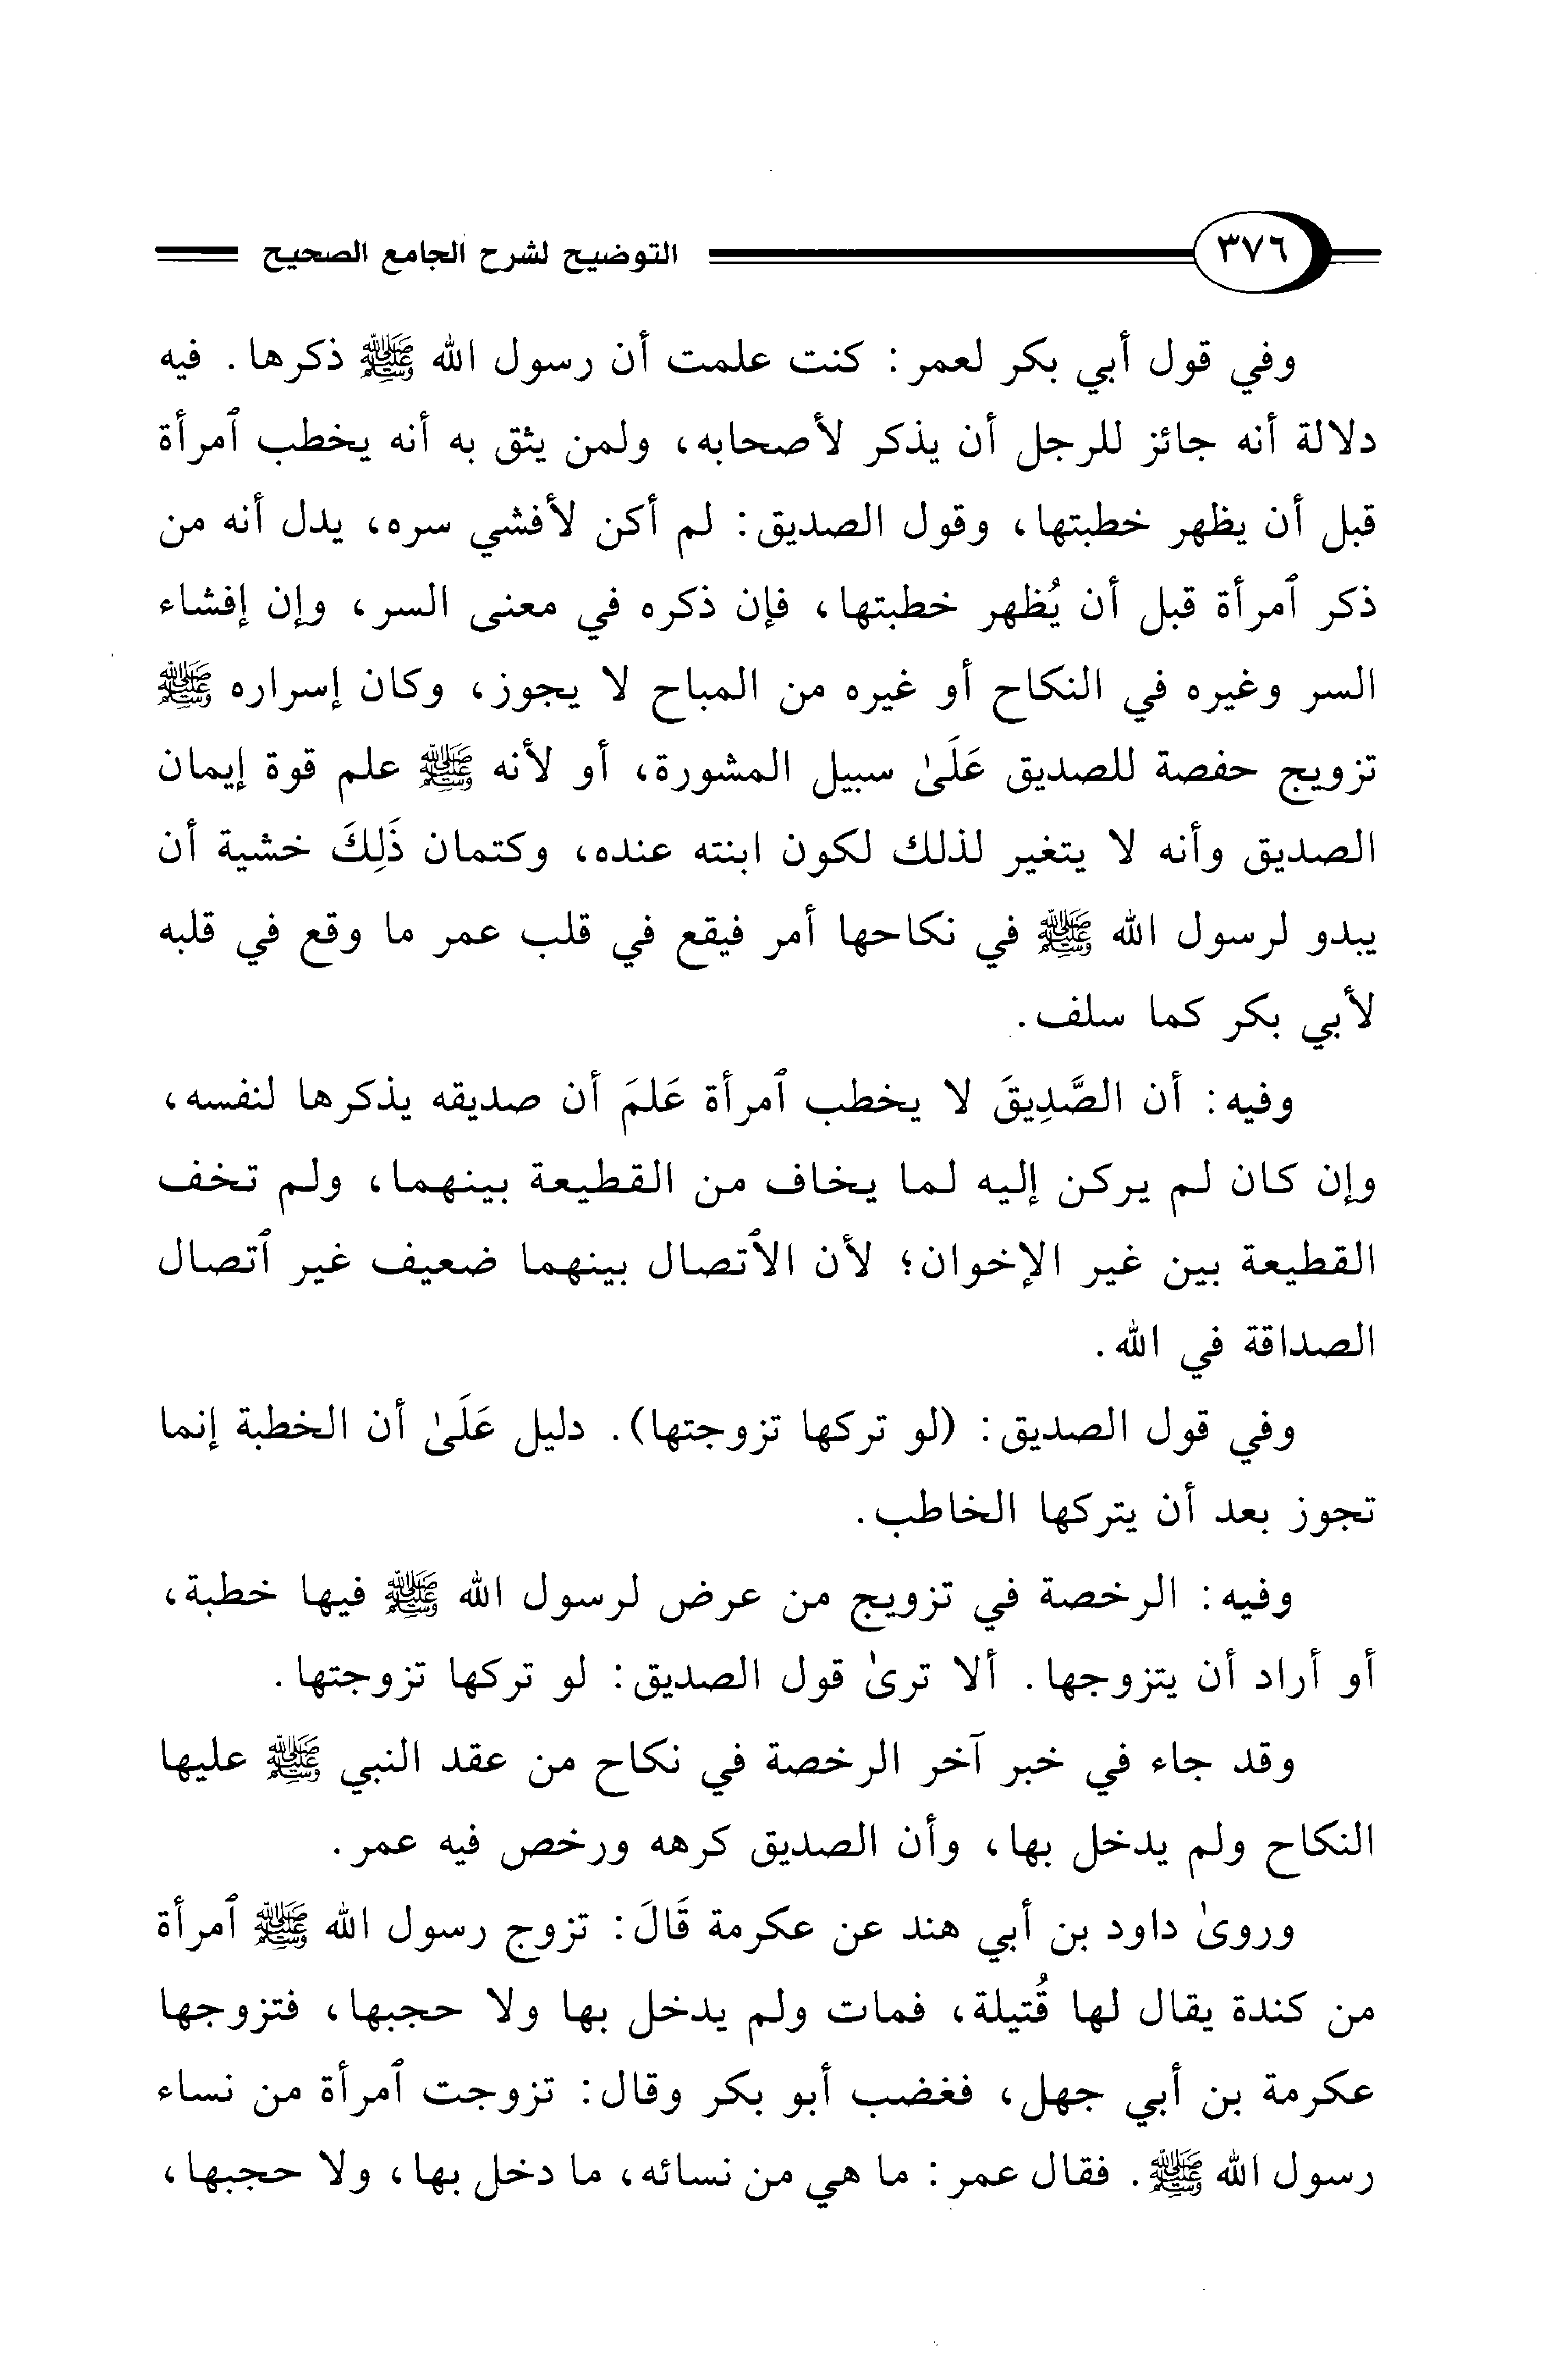 ٣٧٦ التوضيح لشرح الجامع الصحيح
وفي قول أبي بكر لعمر: كنت علمت أن رسول الله ﷺ ذكرها. فيه
دلالة أنه جائز للرجل أن يذكر لأصحابه، ولمن يثق به أنه يخطب ٱمرأة
قبل أن يظهر خطبتها، وقول الصديق: لم أكن لأفشي سره، يدل أنه من
ذكر ٱمرأة قبل أن يُظهر خطبتها، فإن ذكره في معنى السر، وإن إفشاء
السر وغيره في النكاح أو غيره من المباح لا يجوز، وكان إسراره ﷺ
تزويج حفصة للصديق عَلَىٰ سبيل المشورة، أو لأنه ﷺ علم قوة إيمان
الصديق وأنه لا يتغير لذلك لكون ابنته عنده، وكتمان ذَلِكَ خشية أن
يبدو لرسول الله ﷺ في نكاحها أمر فيقع في قلب عمر ما وقع في قلبه
لأبي بكر كما سلف.
وفيه: أن الصَّدِيقَ لا يخطب ٱمرأة عَلمَ أن صديقه يذكرها لنفسه،
وإن كان لم يركن إليه لما يخاف من القطيعة بينهما، ولم تخف
القطيعة بين غير الإخوان؛ لأن الٱتصال بينهما ضعيف غير ٱتصال
الصداقة في الله.
وفي قول الصديق: (لو تركها تزوجتها). دليل عَلَىٰ أن الخطبة إنما
تجوز بعد أن يتركها الخاطب.
وفيه: الرخصة في تزويج من عرض لرسول الله ﷺ فيها خطبة،
أو أراد أن يتزوجها. ألا ترىٰ قول الصديق: لو تركها تزوجتها.
وقد جاء في خبر آخر الرخصة في نكاح من عقد النبي ﷺ عليها
النكاح ولم يدخل بها، وأن الصديق كرهه ورخص فيه عمر.
وروىٰ داود بن أبي هند عن عكرمة قَالَ: تزوج رسول الله ﷺ ٱمرأة
من كندة يقال لها قُتيلة، فمات ولم يدخل بها ولا حجبها، فتزوجها
عكرمة بن أبي جهل، فغضب أبو بكر وقال: تزوجت ٱمرأة من نساء
رسول الله ﷺ. فقال عمر: ما هي من نسائه، ما دخل بها، ولا حجبها،